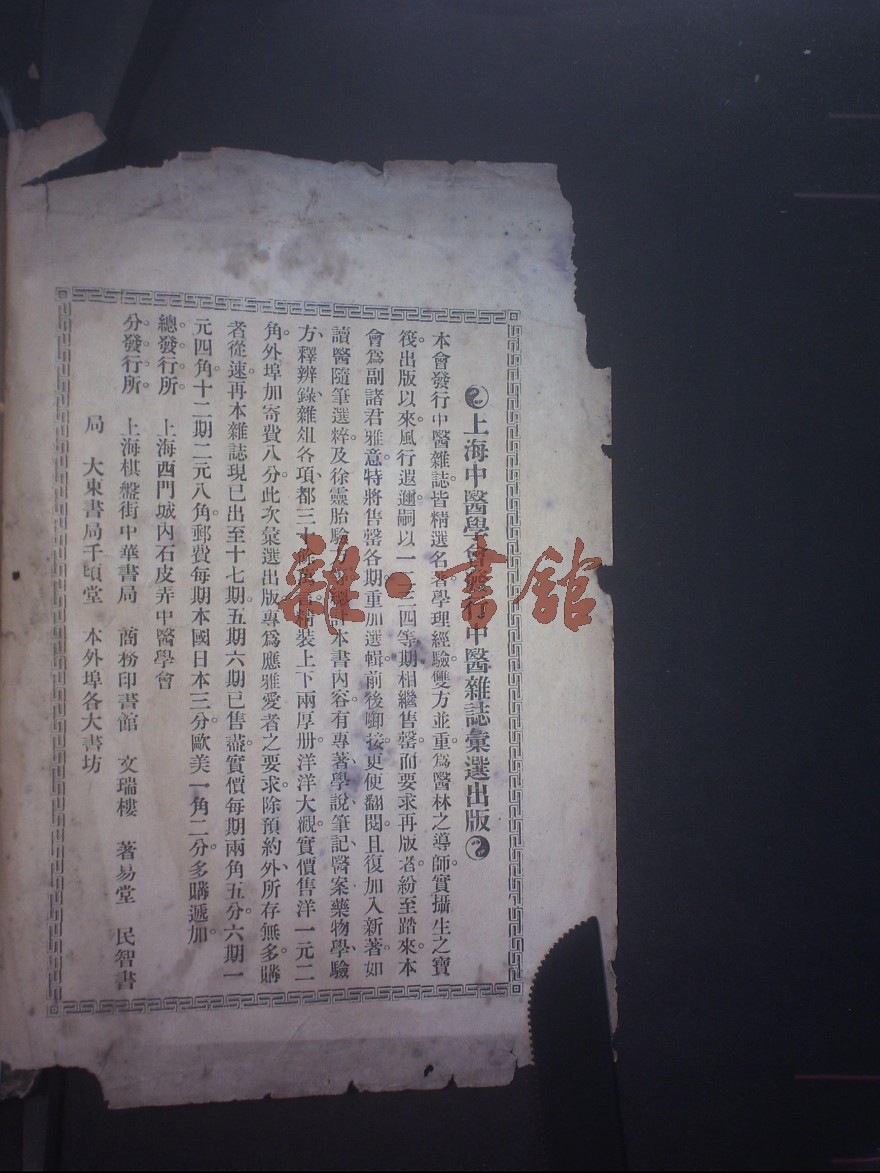 上海中醫學會發行中醫雜誌彙選出版
本會發行中醫雜誌。皆精選名著。學理經驗。雙方並重。爲醫林之導師。實攝生之寶
筏。出版以來。風行遐邇。嗣以一二三四等期。相繼售罄。而要求再版者。紛至踏來。本
會爲副諸君雅意。特將售罄各期。重加選輯。前後啣接。更便翻閱。且復加入新著。如
讀醫隨筆選粹。及徐靈胎驗方 本書內容。有專著、學說、筆記、醫案、藥物、學驗
方、釋辨錄、雜俎各項、都三十 精裝上下兩厚册。洋洋大觀。實價售洋一元二
角。外埠加寄費八分。此次彙選出版。專爲應雅愛者之要求。除預約外、所存無多。購
者從速。再本雜誌現已出至十七期。五期六期已售盡。實價每期兩角五分。六期一
元四角。十二期二元八角。郵費每期本國日本三分。歐美一角二分。多購遞加。
總發行所 上海西門城內石皮弄中醫學會
分發行所 上海棋盤街中華書局 商務印書館 文瑞樓 著易堂 民智書
局 大東書局千頃堂 本外埠各大書坊
雜·書館